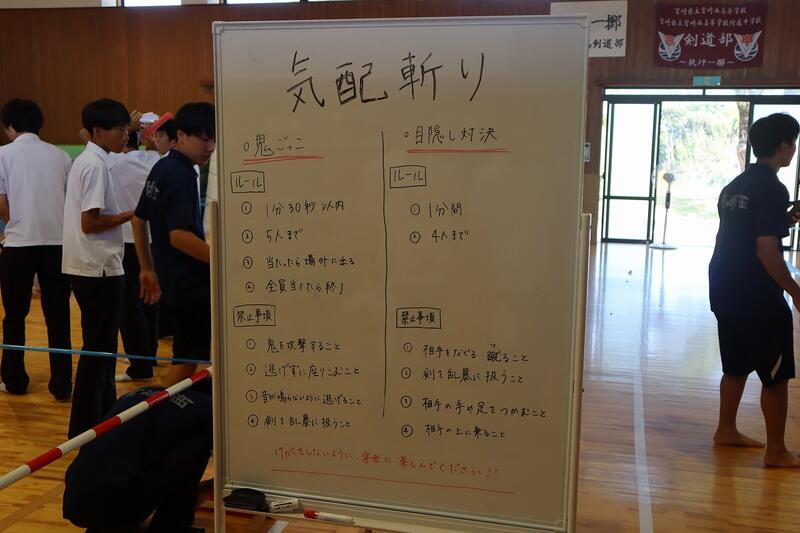 気配斬り
○鬼ごっこ
ルール
① 1分30秒以内
② 5人まで
③ 当たったら場外に出る
④ 全員当てたら終了
禁止事項
① 鬼を攻撃すること
② 逃げずに座りこむこと
③ 音が鳴らないように逃げること
④ 剣を乱暴に扱うこと
○目隠し対決
ルール
① 1分間
② 4人まで
禁止事項
① 相手をなぐる・蹴ること
② 剣を乱暴に扱うこと
③ 相手の手や足をつかむこと
④ 相手の上に乗ること
けがをしないように、安全に楽しんでください!!
一擲
剣道部
宮崎県立宮崎西高等学校
宮崎県立宮崎西高等学校附属中学校
剣道部
～乾坤一擲～